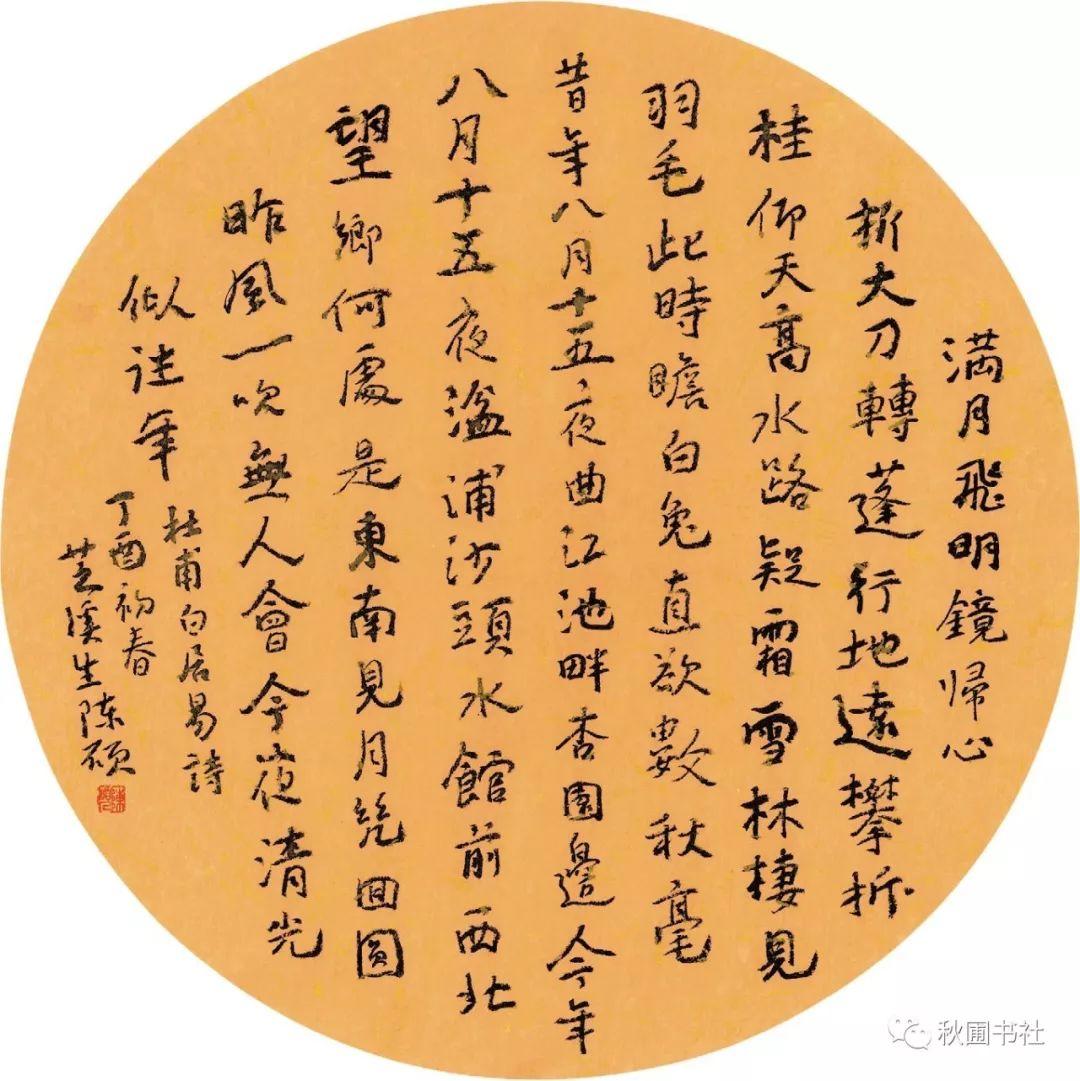 満月飛明鏡帰心
折大刀轉蓬行地遠攀折
桂仰天高水路疑霜雪林棲見
羽毛此時瞻白兔直欲數秋毫
昔年八月十五夜曲江池畔杏園邊今年
八月十五夜湓浦沙頭水館前西北
望鄉何處是東南見月幾回圓
昨風一吹無人會今夜清光
似往年
杜甫白居易詩
丁酉初春
芝溪生陈硕
秋圃书社